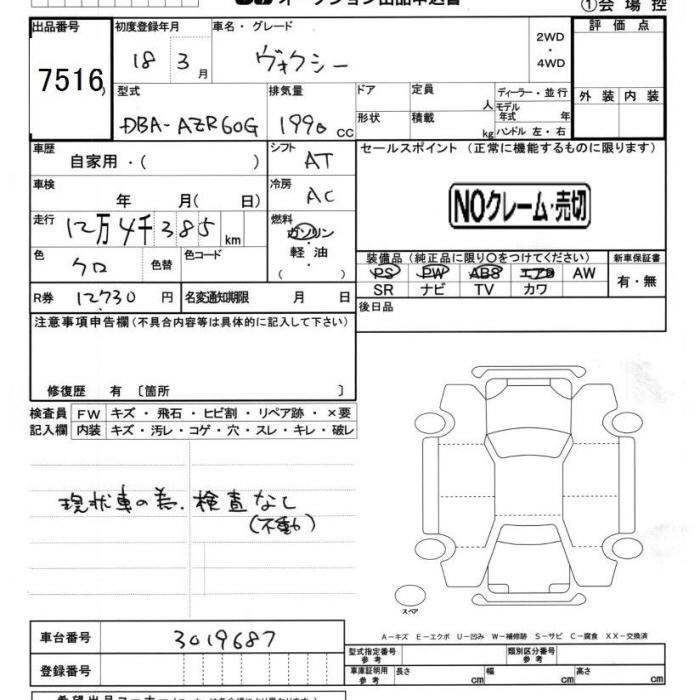 オークション出品申込書
①会場控
出品番号 初度登録年月 車名・グレード 2WD・4WD 評価点
7516 18 3月 ヴォクシー
型式 排気量 ドア 定員 人 ディーラー・並行 外装 内装
DBA-AZR60G 1990 cc 形状 積載 kg モデル年式 年 ハンドル 左・右
車歴 自家用・( ) シフト AT セールスポイント(正常に機能するものに限ります)
車検 年 月( 日) 冷房 AC
NOクレーム・売切
走行 12万4千385 km 燃料 ガソリン・軽油・( )
色 クロ 色替 色コード
装備品(純正品に限り○をつけてください) 新車保証書
PS PW ABS エアB AW 有・無
SR ナビ TV カワ
R券 12,730 円 名変通知期限 月 日
後日品
注意事項申告欄(不具合内容等は具体的に記入して下さい)
修復歴 有〔箇所 〕
検査員記入欄 FW キズ・飛石・ヒビ割・リペア跡・×要
内装 キズ・汚レ・コゲ・穴・スレ・キレ・破レ
現状車の為、検査なし
(不動)
スペア
A－キズ E－エクボ U－凹み W－補修跡 S－サビ C－腐食 XX－交換済
車台番号 3019687
型式指定番号 参考 類別区分番号 参考
登録番号
車庫証明用 参考 長さ cm 幅 cm 高さ cm
希望出品コーナー